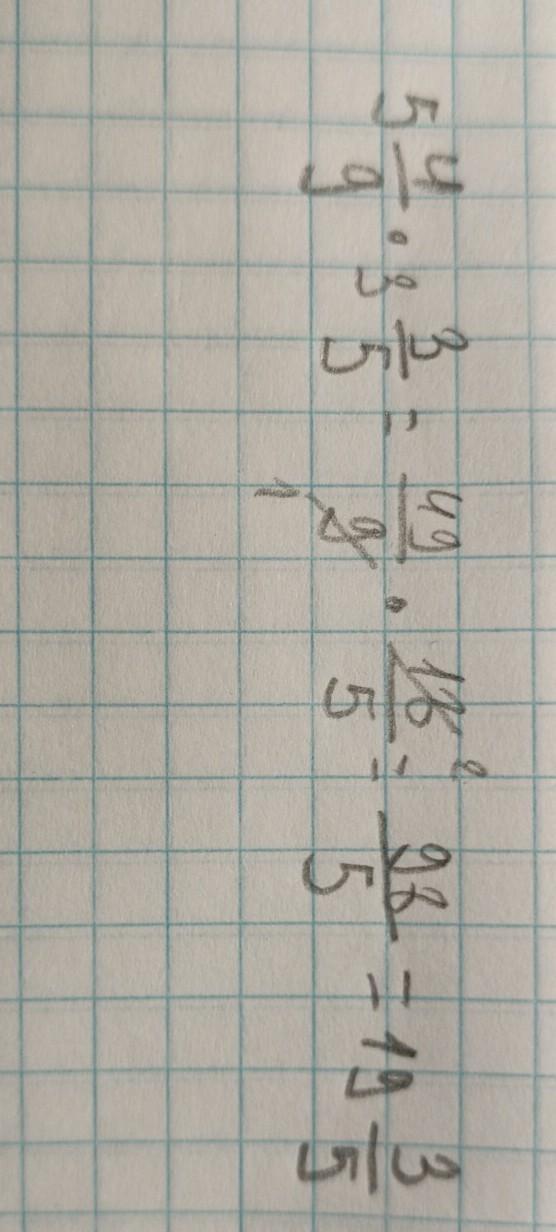 5 4/9 · 3 3/5 = 49/9 1 · 18/5 2 = 98/5 = 19 3/5